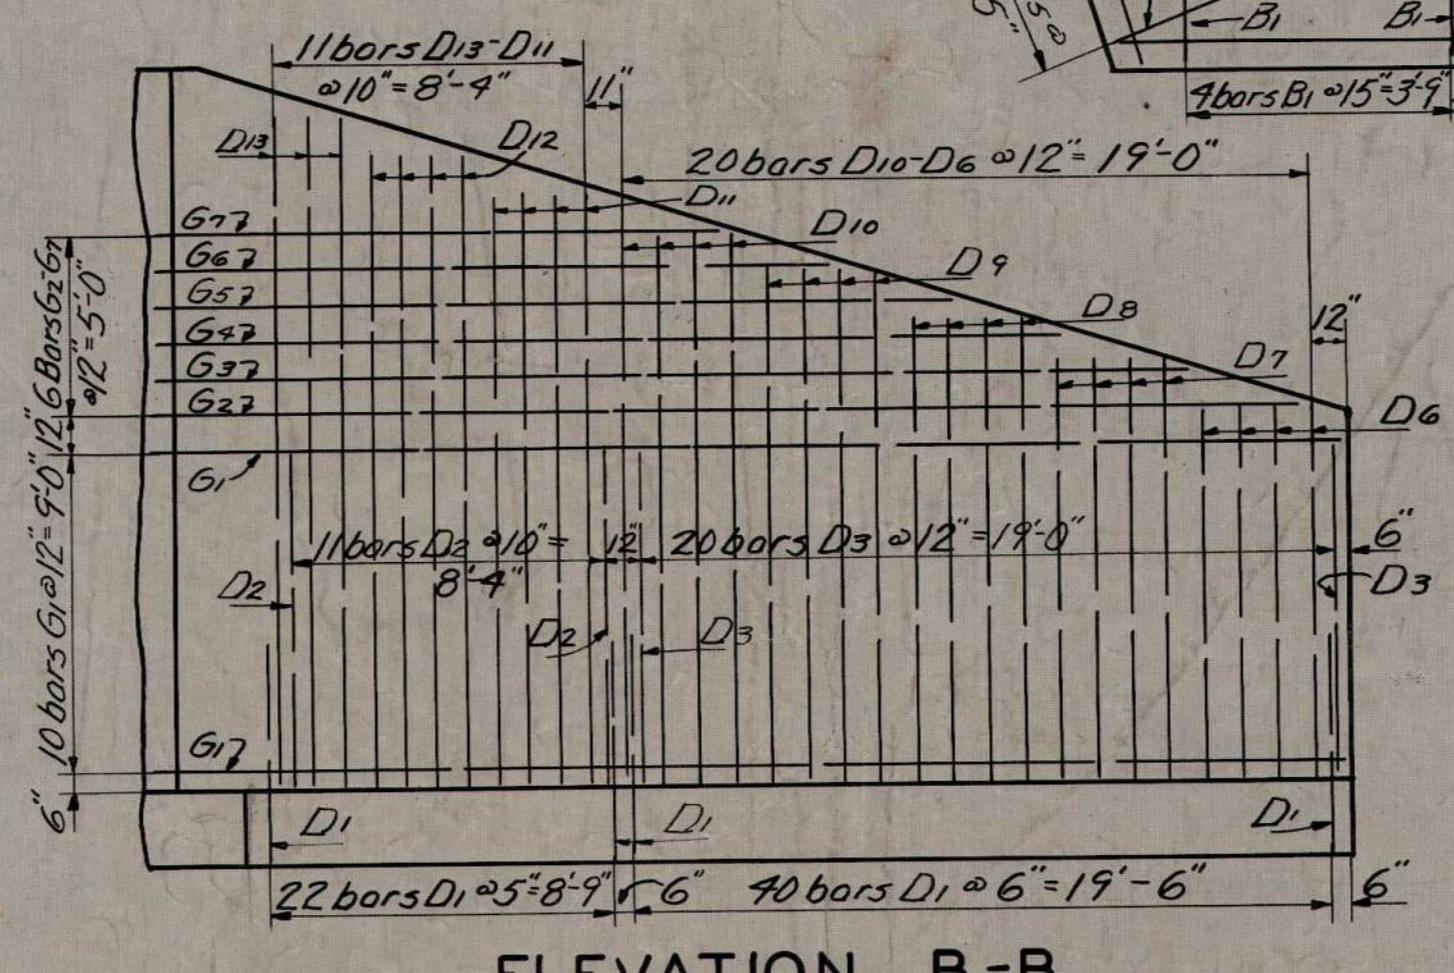 11 bars D13-D11
@10"=8'-4"
11"
5@
5"
B1
B1
4 bars B1 @15"=3'-9"
D13
D12
20 bars D10-D6 @12"=19'-0"
D11
D10
D9
D8
12"
D7
D6
G7
G6
G5
G4
G3
G2
G1
6 Bars G2-G7
@12"=5'-0"
12"
10 bars G1 @12"=9'-0"
6"
11 bars D2 @10"=
8'-4"
12"
20 bars D3 @12"=19'-0"
6"
D2
D3
D2
D3
G1
D1
D1
D1
22 bars D1 @5"=8'-9"
6"
40 bars D1 @6"=19'-6"
6"
ELEVATION B-B